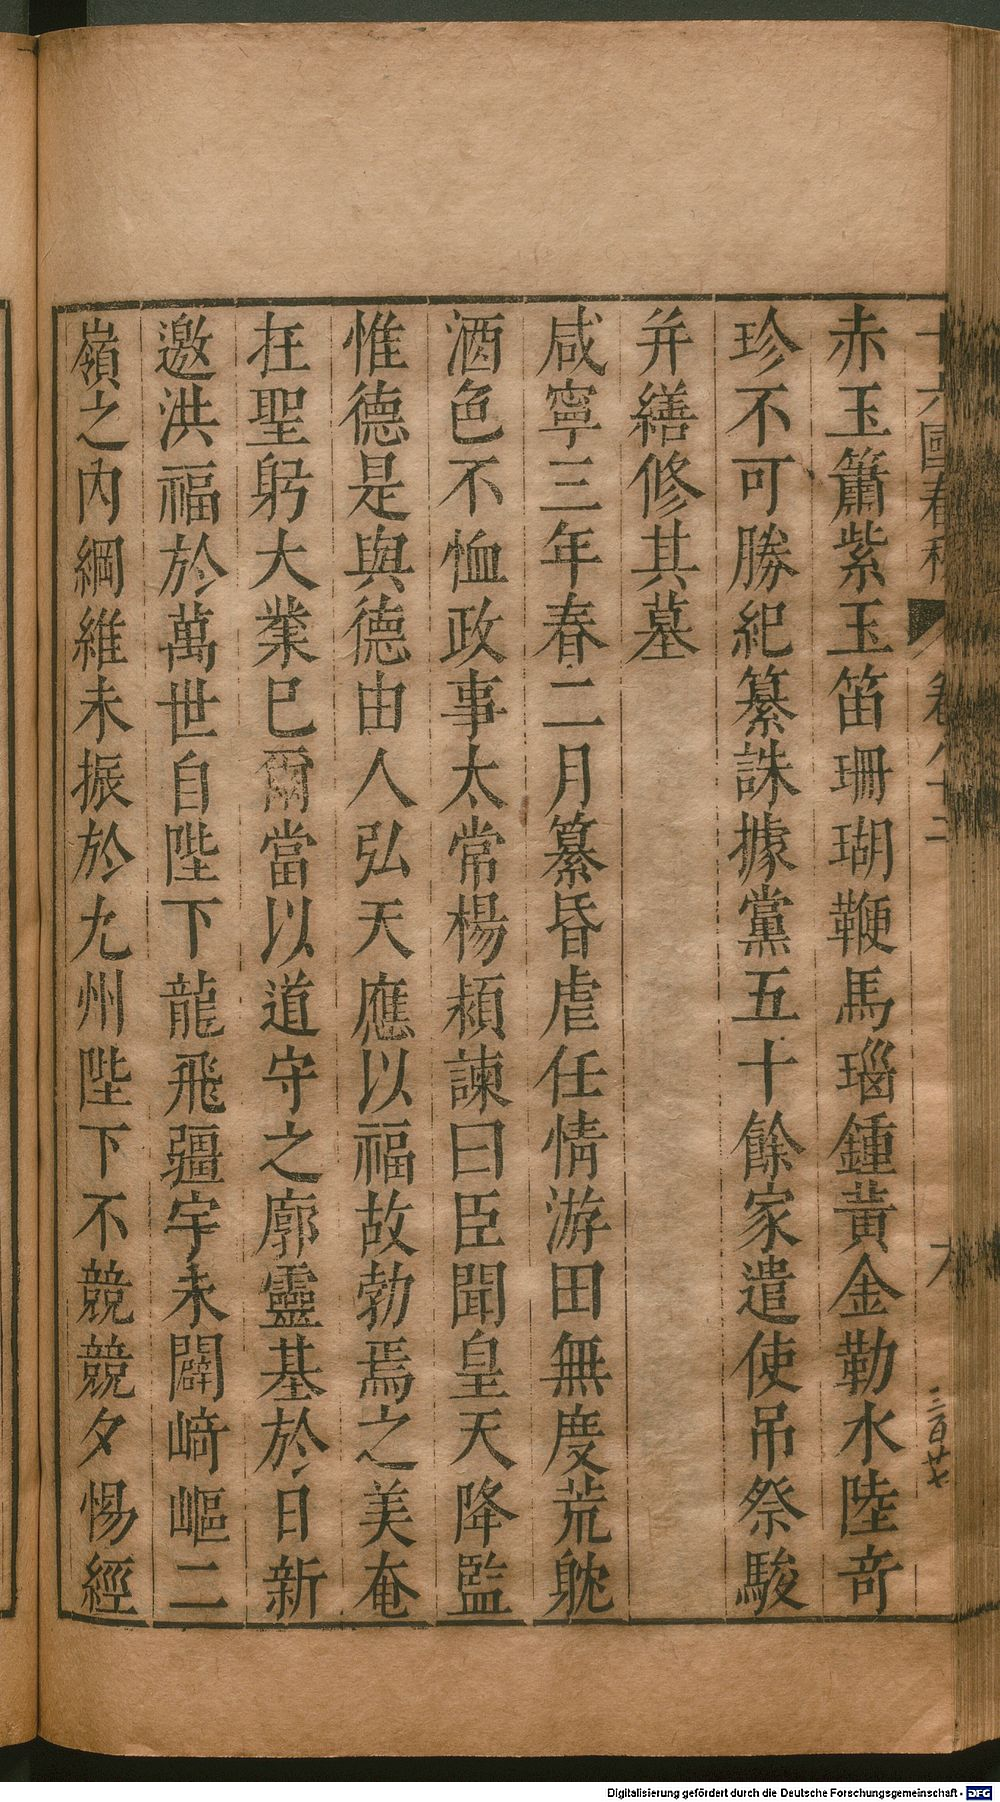 十六國春秋 卷八十二 六
三百廿七
赤玉簫紫玉笛珊瑚鞭馬瑙鍾黃金勒水陸竒
珍不可勝紀纂誅據黨五十餘家遣使吊祭駿
并繕修其墓
咸寧三年春二月纂昏虐任情游田無度荒躭
酒色不恤政事太常楊頴諫曰臣聞皇天降監
惟德是與德由人弘天應以福故勃焉之美奄
在聖躬大業巳爾當以道守之廓靈基於日新
邀洪福於萬世自陛下龍飛疆宇未闢崎嶇二
嶺之內綱維未振於九州陛下不競競夕惕經
Digitalisierung gefördert durch die Deutsche Forschungsgemeinschaft - DFG